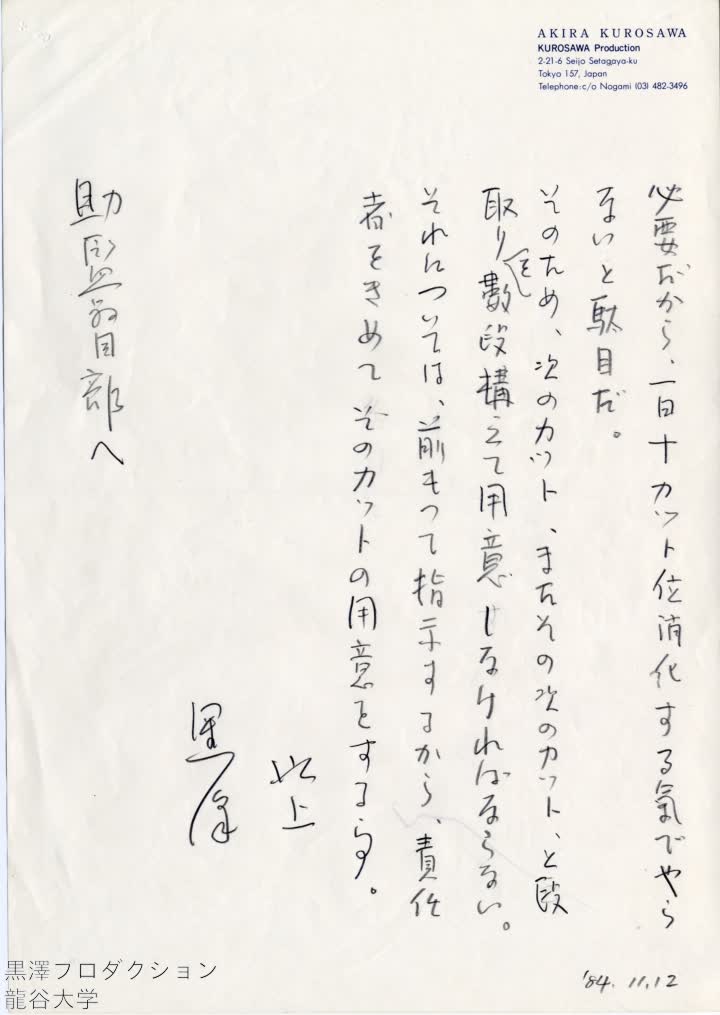 AKIRA KUROSAWA
KUROSAWA Production
2-21-6 Seijo Setagaya-ku
Tokyo 157, Japan
Telephone:c/o Nogami (03) 482-3496
必要だから、一日十カット位消化する氣でやら
ないと駄目だ。
そのため、次のカット、またその次のカット、と段
取りをし数段構えて用意しなければならない。
それについては、前もって指示するから、責任
者をきめてそのカットの用意をする事。
以上
黒澤
助監督部へ
'84.11.12
黒澤プロダクション
龍谷大学